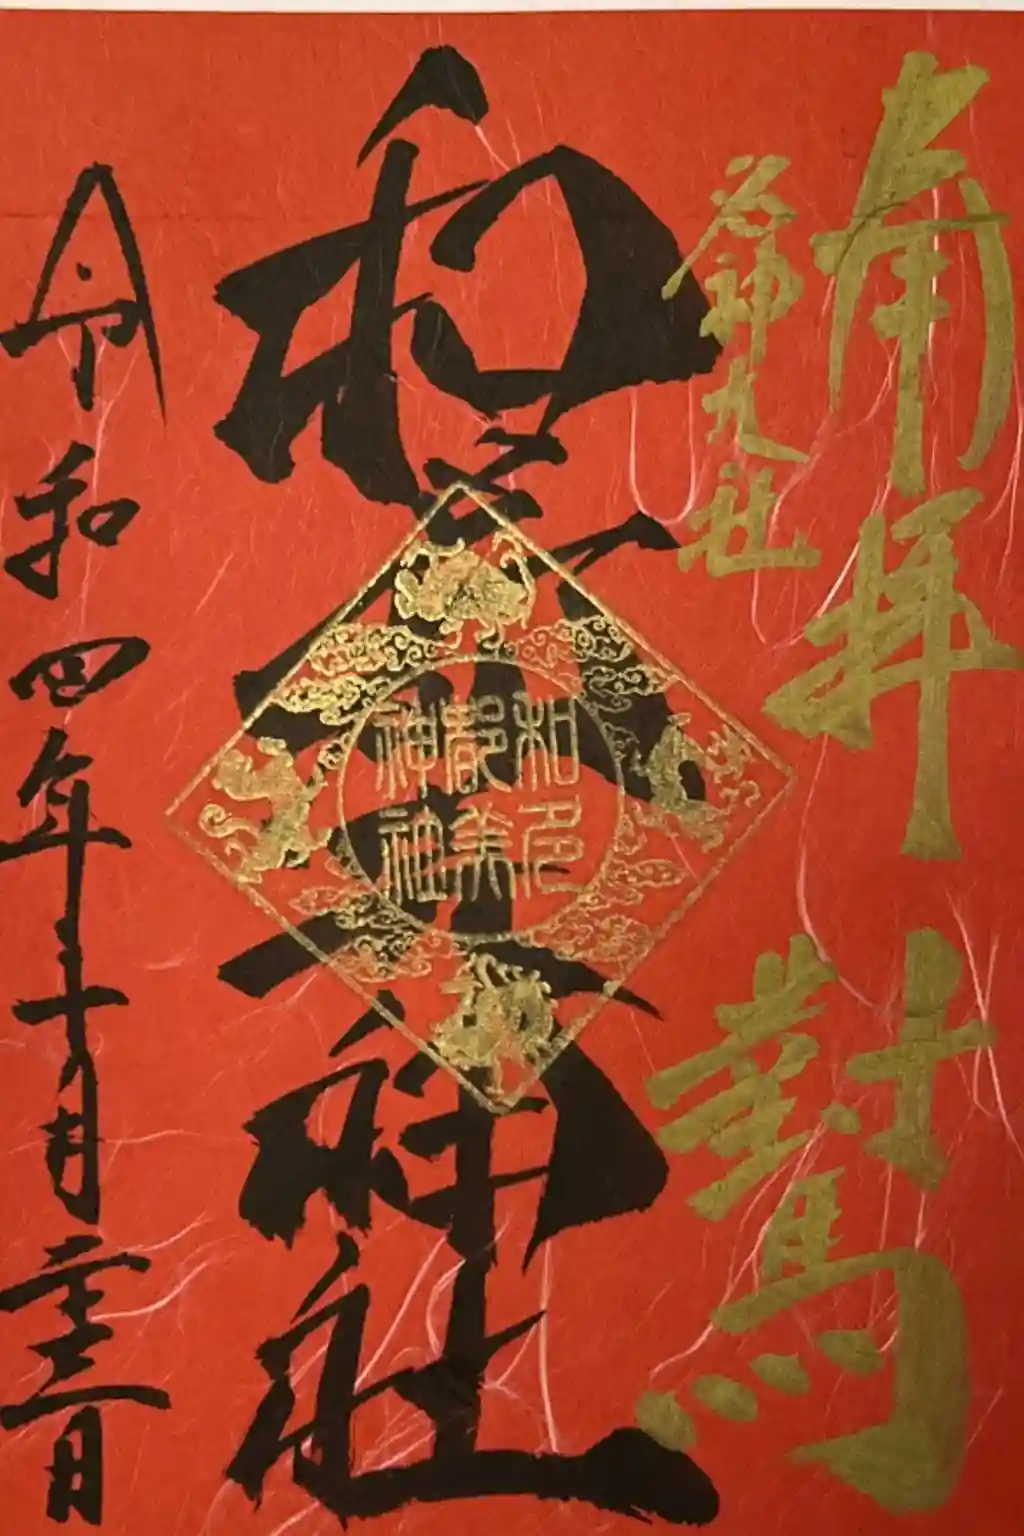 奉拝 對馬
名神大社
和多都美神社
和多
都美
神社
令和四年十月二十二日